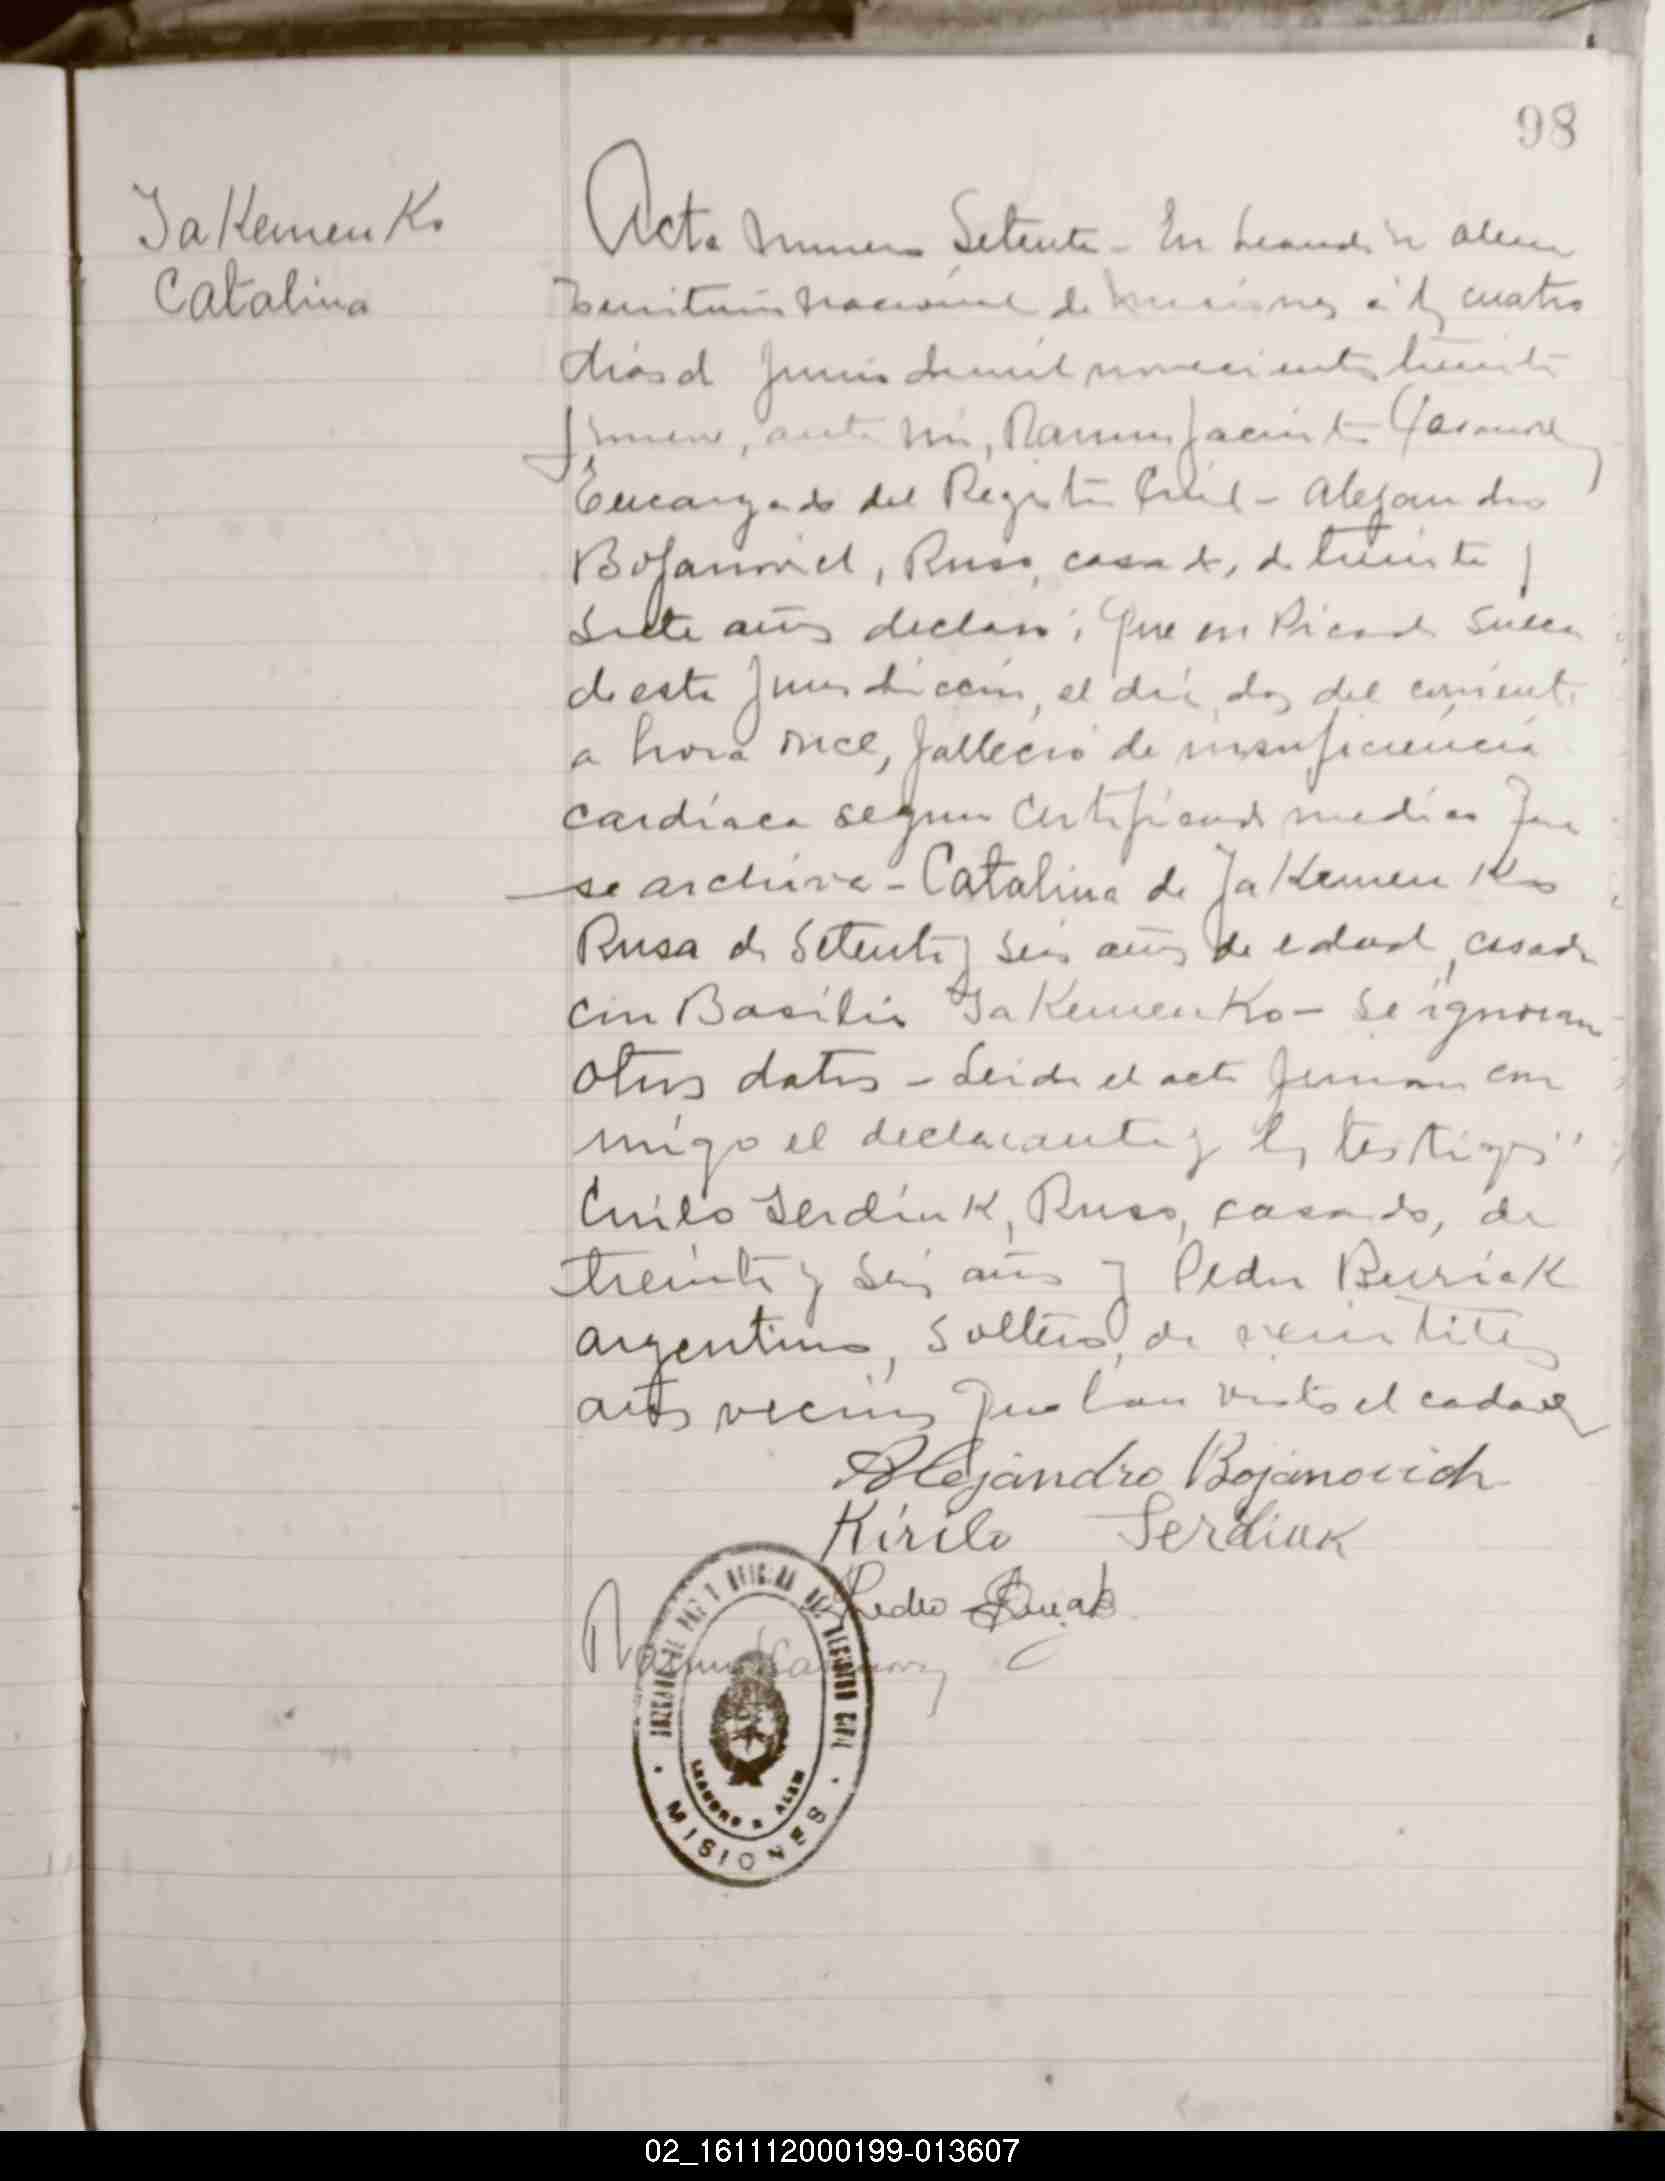 98
JaKemenKo
Catalina
Acta numero Setenta - En Leandro N Alem
Territorio nacional de Misiones á los cuatro
dias de Junio de mil novecientos treinta
y nueve, ante mi, Ramon Jacinto Casanova
Encargado del Registro Civil - Alejandro
Bojanovich, Ruso, casado, de treinta y
siete años declaró; que en Picada Sueca
de esta Jurisdiccion, el dia dos del corriente
a hora once, falleció de insuficiencia
cardíaca segun certificado medico que
se archiva - Catalina de JaKemenKo
Rusa de Setenta y seis años de edad, casada
con Basilio JaKemenKo - Se ignoran
otros datos - Leida el acta firman con
migo el declarante y los testigos
Cirilo Serdiuk, Ruso, casado, de
treinta y seis años y Pedro
argentino, Soltero, de
años vecinos que han visto el cadaver
Alejandro Bojanovich
Kirilo Serdiuk
Pedro
Ramon Casanova
JUZGADO DE PAZ Y OFICINA DEL REGISTRO CIVIL
LEANDRO N ALEM
MISIONES
02_161112000199-013607